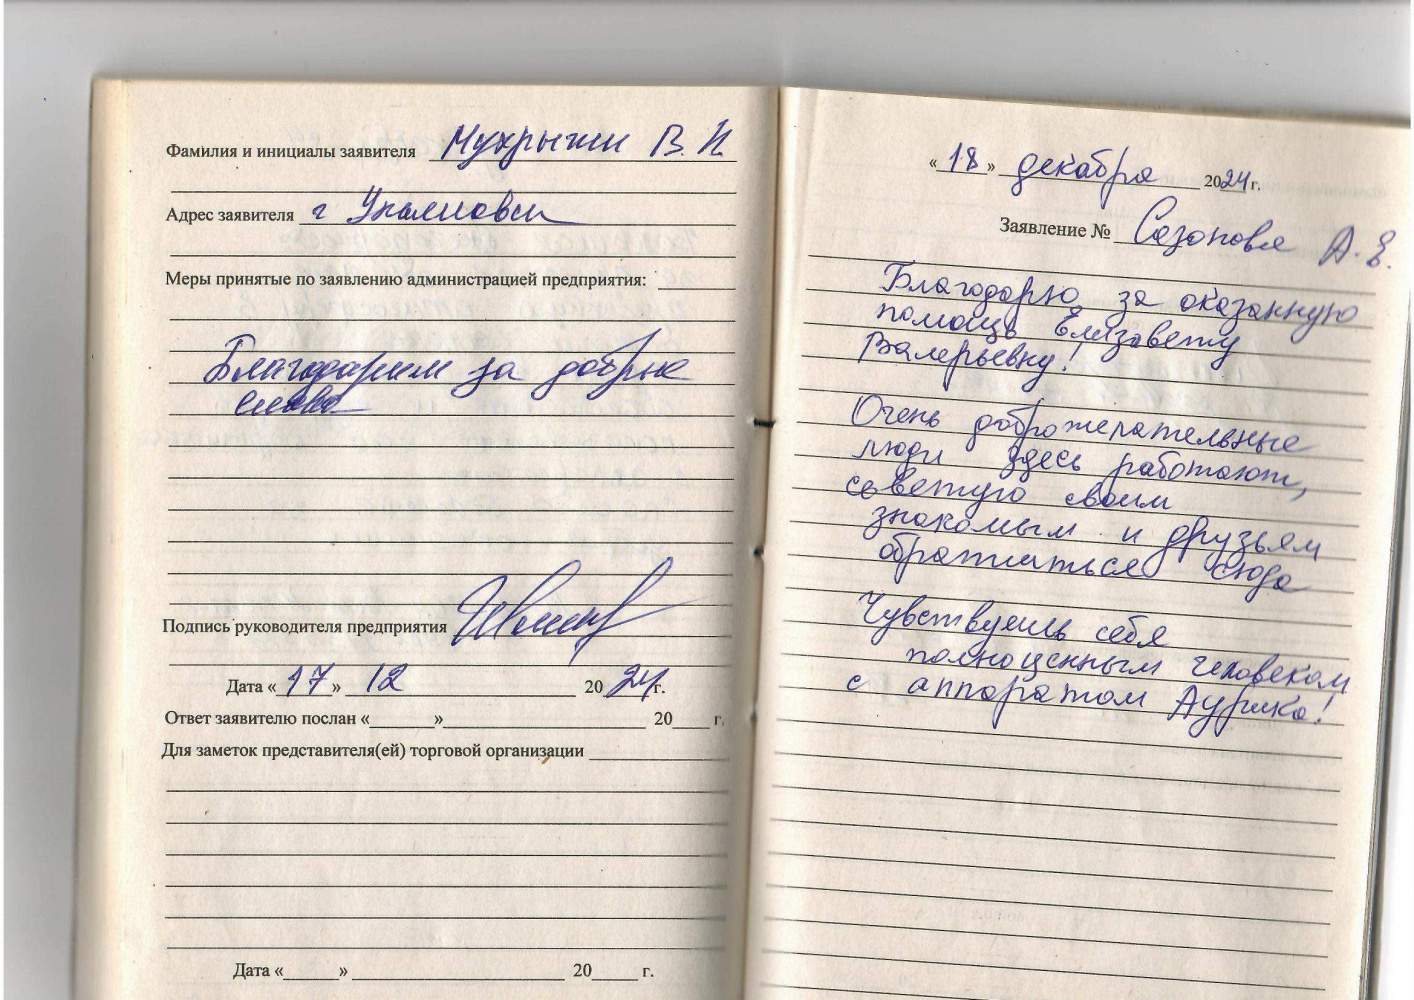 Фамилия и инициалы заявителя Мухрыжин В. И.
Адрес заявителя г
Меры принятые по заявлению администрацией предприятия:
Благодарим за добрые
слова
Подпись руководителя предприятия
Дата «17» 12 2024г.
Ответ заявителю послан «   » 20 г.
Для заметок представителя(ей) торговой организации
Дата «   » 20 г.
«18» декабря 2024 г.
Заявление № Сазонова А. Е.
Благодарю за оказанную
помощь Елизавету
Валерьевну!
Очень доброжелательные
люди здесь работают,
советую своим
знакомым и друзьям
обратиться сюда
Чувствуешь себя
полноценным человеком
с аппаратом Аурика!